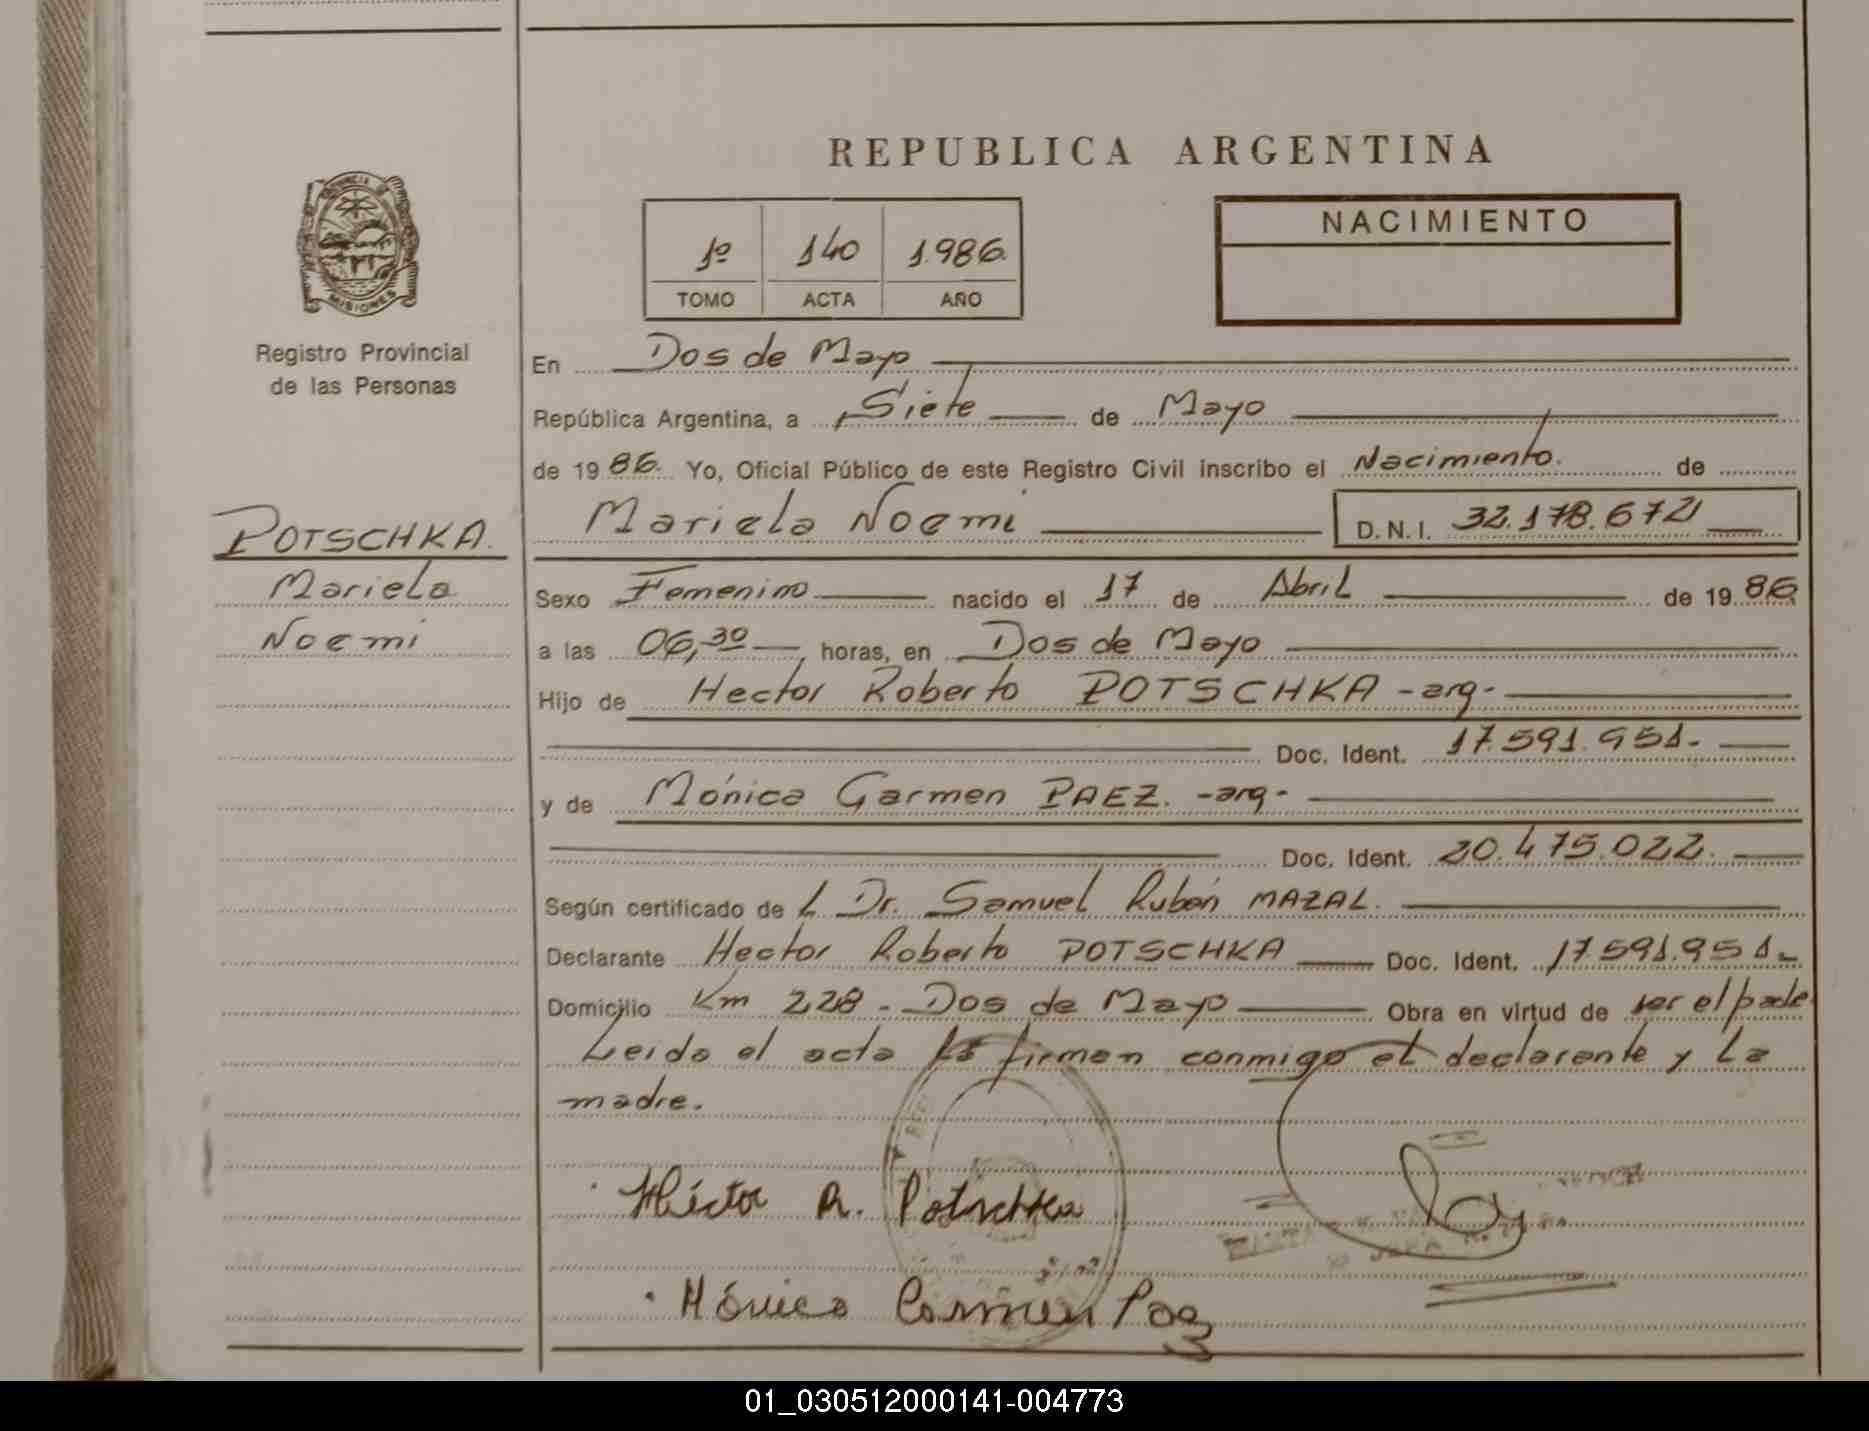 REPUBLICA ARGENTINA
PROVINCIA DE
MISIONES
Registro Provincial
de las Personas
1º 140 1.986.
TOMO ACTA AÑO
NACIMIENTO
En Dos de Mayo
República Argentina, a Siete de Mayo
de 19 86. Yo, Oficial Público de este Registro Civil inscribo el Nacimiento. de
POTSCHKA.
Mariela
Noemi
Mariela Noemi D.N.I. 32.178.672
Sexo Femenino nacido el 17 de Abril de 19 86
a las 06,30 horas, en Dos de Mayo
Hijo de Hector Roberto POTSCHKA -arg-
Doc. Ident. 17.591.951.-
y de Mónica Carmen PAEZ. -arg-
Doc. Ident. 20.475.022.
Según certificado de L Dr. Samuel Rubén MAZAL.
Declarante Hector Roberto POTSCHKA Doc. Ident. 17.591.951.-
Domicilio Km 228 - Dos de Mayo Obra en virtud de ser el padre
Leida el acta la firman conmigo el declarante y la
madre.
Héctor R. Potschka
Mónica Carmen Paez
01_030512000141-004773